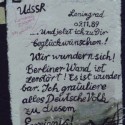 UdSSR Leningrad
03.11.89
...Und jetzt ich zu Dir
beglückwünschen!
Wir wundern sich!
Berliner Wand ist
zerstört! Es ist wunder
bar. Ich gratuliere
alles Deutsche Volk
zu diesem